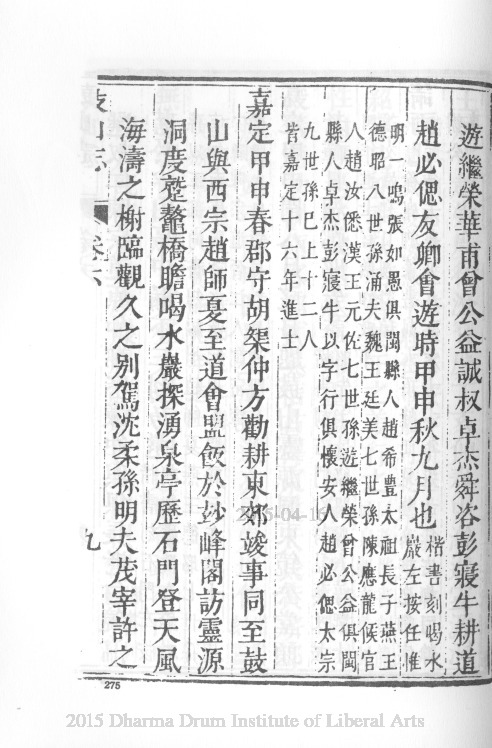 遊繼榮華甫曾公益誠叔卓杰舜咨彭寢牛耕道
趙必偲友卿會遊時甲申秋九月也楷書刻喝水
巖左按任惟
明一鳴張如愚俱閩縣人趙希豊太祖長子燕王
德昭八世孫涌夫魏王廷美七世孫陳應龍候官
人趙汝僁漢王元佐七世孫遊繼榮曾公益俱閩
縣人卓杰彭寢牛以字行俱懷安人趙必偲太宗
九世孫巳上十二人
皆嘉定十六年進士
嘉定甲申春郡守胡槼仲方勸耕東郊竣事同至鼓
山與西宗趙師夏至道會盟飯於玅峰閣訪靈源
洞度蹩鼇橋瞻喝水巖探湧泉亭歷石門登天風
海濤之榭臨觀久之別駕沈柔孫明夫茂宰許之
鼓山志
卷六
九
275
2015-04-16
2015 Dharma Drum Institute of Liberal Arts